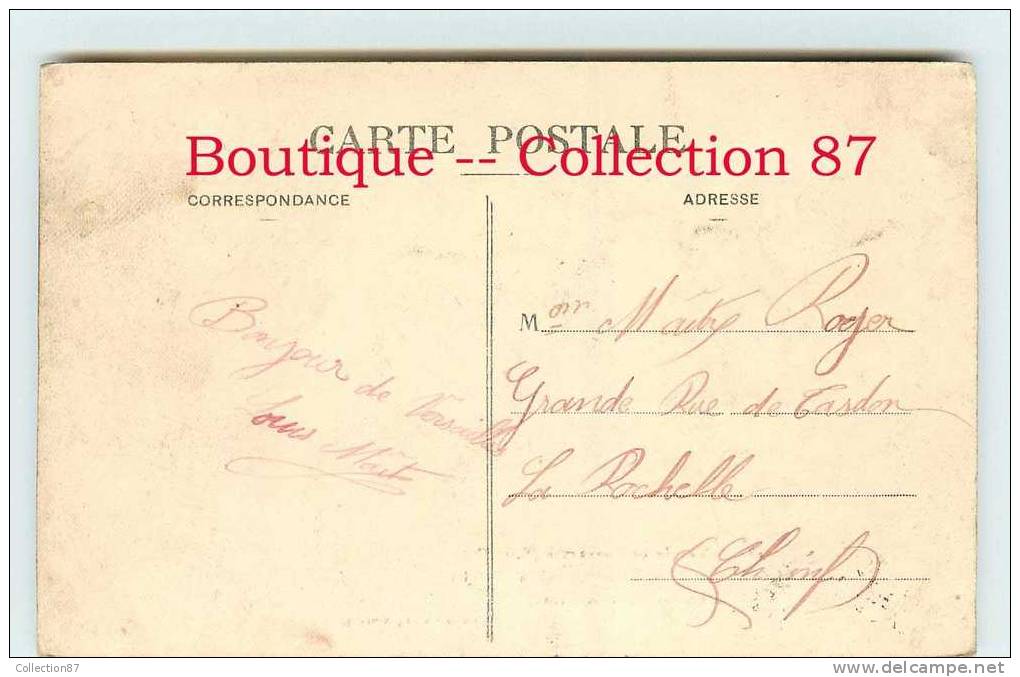 CARTE POSTALE
Boutique -- Collection 87
CORRESPONDANCE
ADRESSE
Bonjour de Versailles
Louis
M on Maitre Roger
Grande Rue de Tasdon
La Rochelle
(Ch inf)
Collection87
www.delcampe.net